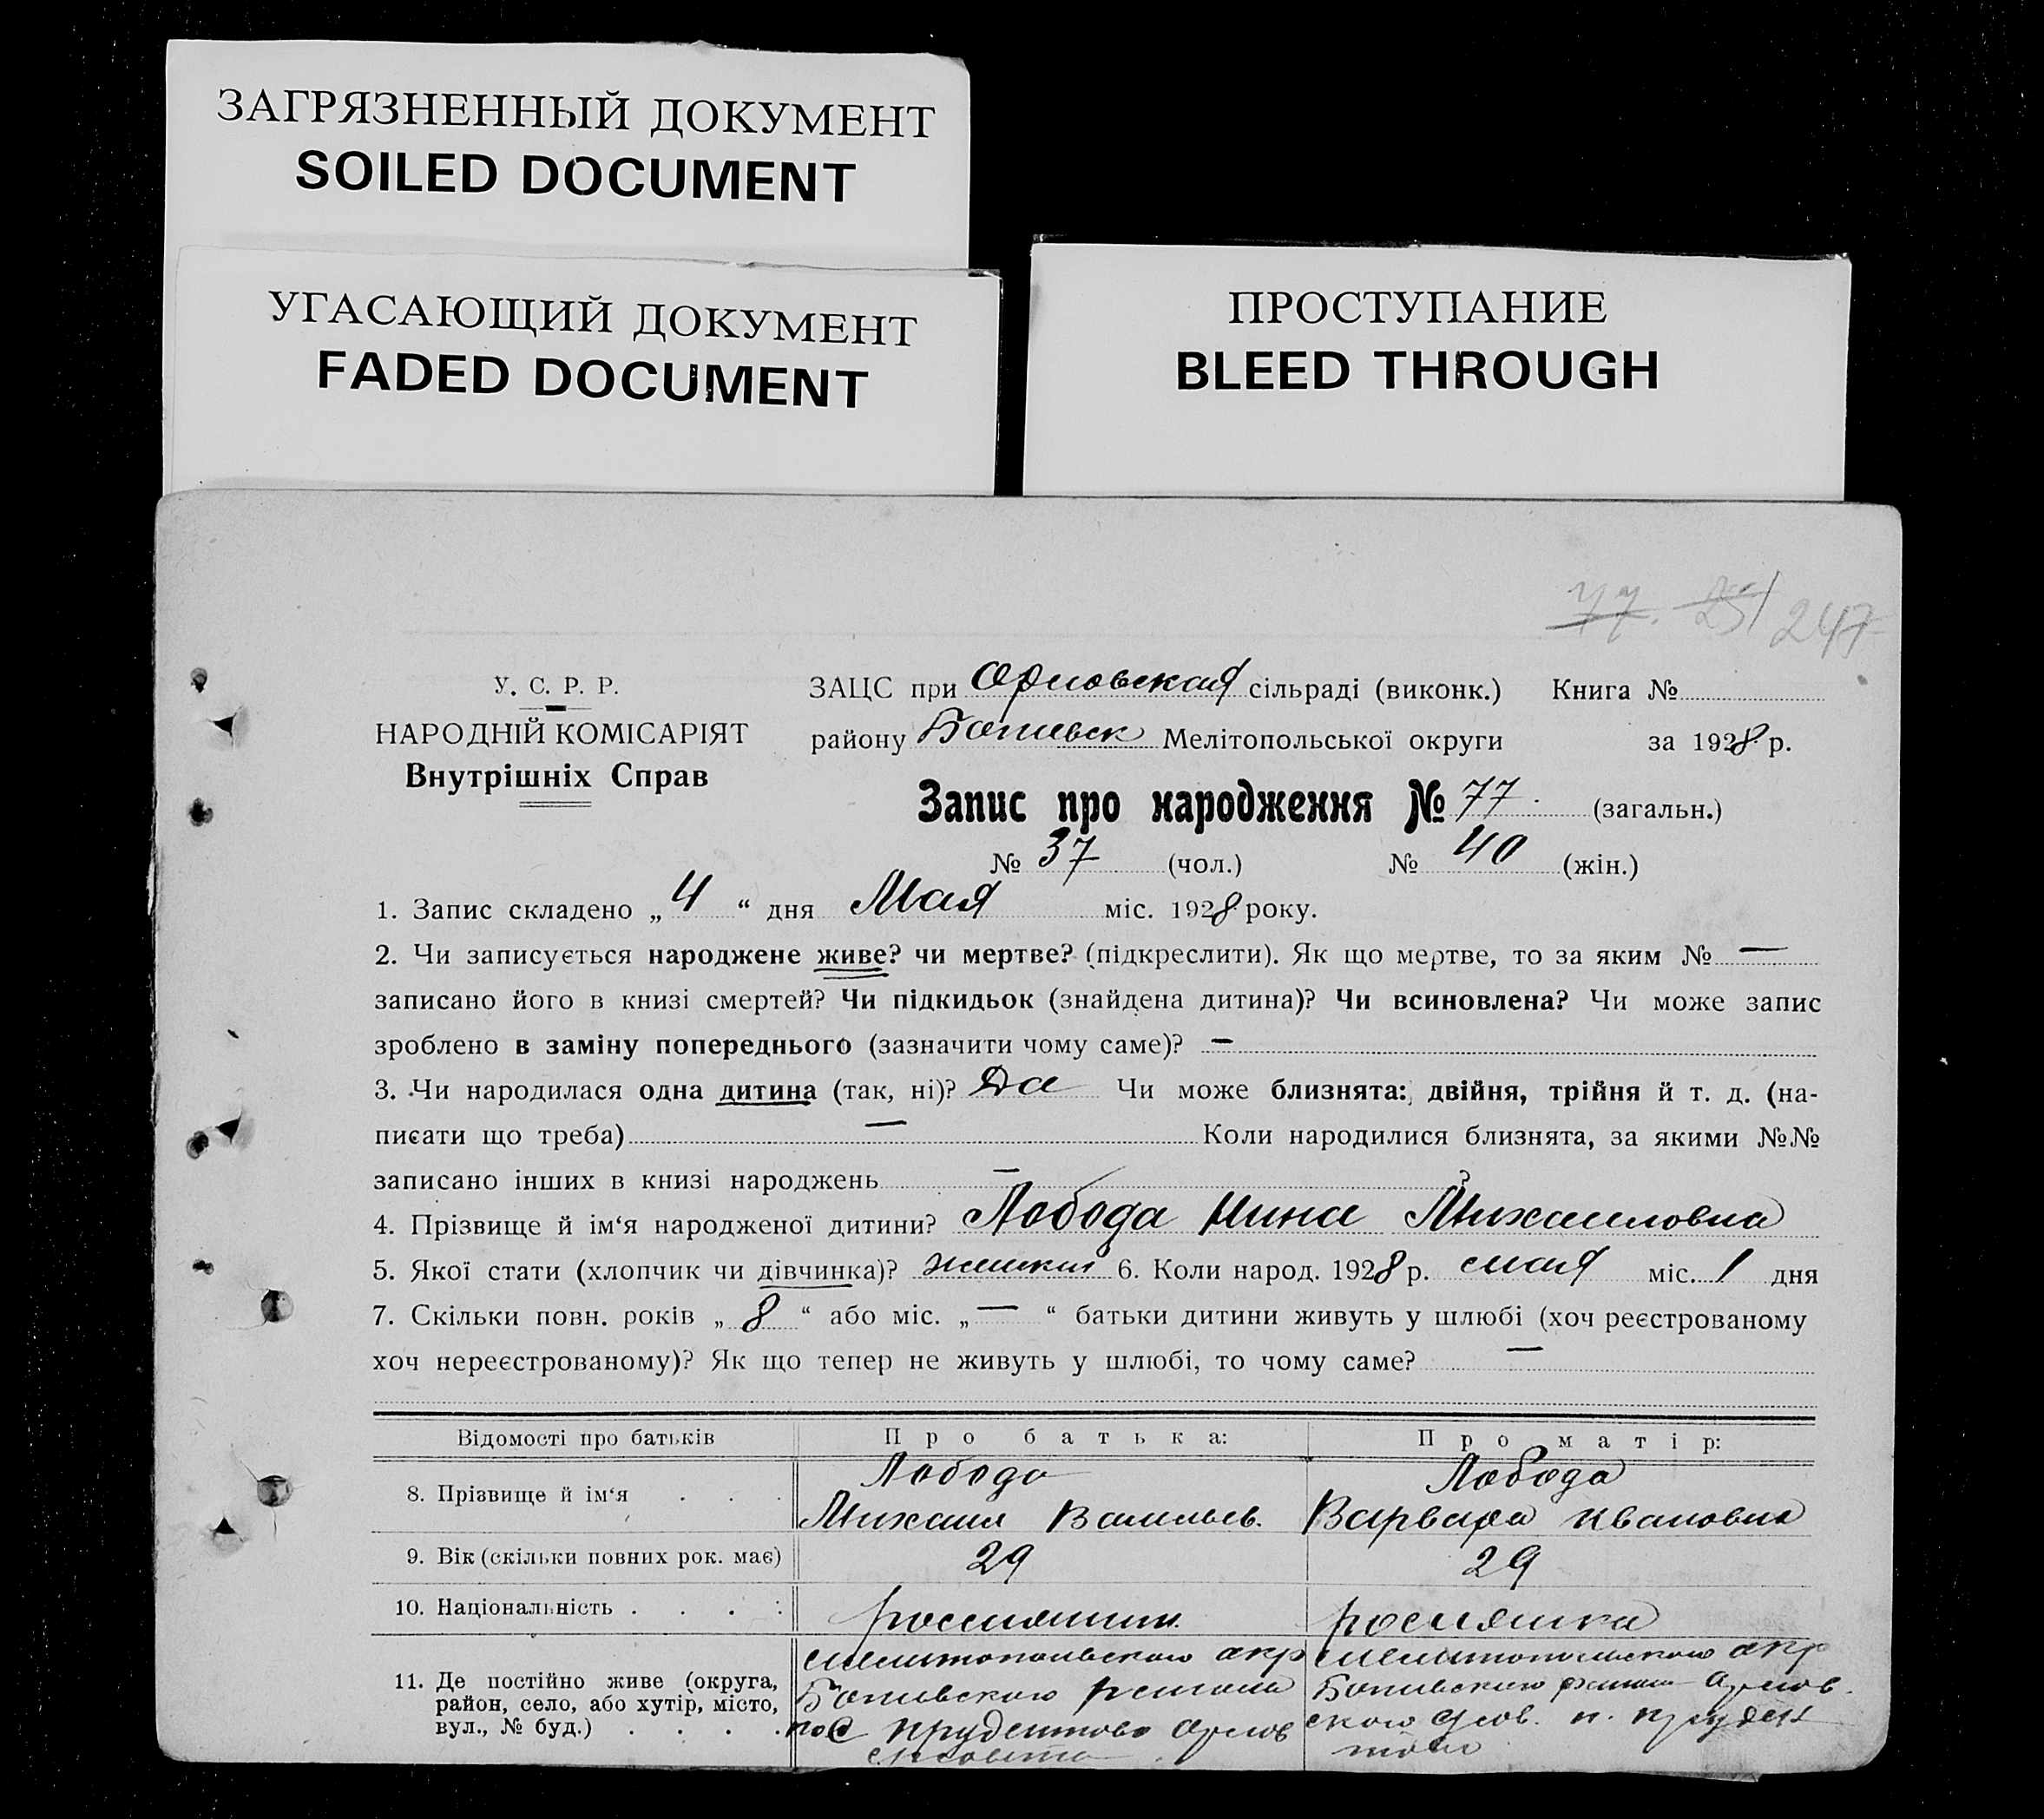 ЗАГРЯЗНЕННЫЙ ДОКУМЕНТ
SOILED DOCUMENT
УГАСАЮЩИЙ ДОКУМЕНТ
FADED DOCUMENT
ПРОСТУПАНИЕ
BLEED THROUGH
77. 251 247
У. С. Р. Р.
НАРОДНІЙ КОМІСАРІЯТ
Внутрішніх Справ
ЗАЦС при Орловская сільраді (виконк.) Книга №
району Ботиевск Мелітопольської округи за 1928 р.
Запис про народження № 77. (загальн.)
№ 37 (чол.) № 40 (жін.)
1. Запис складено „4“ дня Мая міс. 1928 року.
2. Чи записується народжене живе? чи мертве? (підкреслити). Як що мертве, то за яким № —
записано його в книзі смертей? Чи підкидьок (знайдена дитина)? Чи всиновлена? Чи може запис
зроблено в заміну попереднього (зазначити чому саме)? —
3. Чи народилася одна дитина (так, ні)? Да Чи може близнята: двійня, трійня й т. д. (на-
писати що треба) — Коли народилися близнята, за якими №№
записано інших в книзі народжень — ?
4. Прізвище й ім‘я народженої дитини? Лобода Нина Михайловна
5. Якої стати (хлопчик чи дівчинка)? 6. Коли народ. 1928 р. мая міс. 1 дня
7. Скільки повн. років „8“ або міс. „—“ батьки дитини живуть у шлюбі (хоч реєстрованому
хоч нереєстрованому)? Як що тепер не живуть у шлюбі, то чому саме? —
Відомості про батьків Про батька: Про матір:
8. Прізвище й ім‘я . . . Лобода Михаил Васильев. Лобода Варвара Ивановна
9. Вік (скільки повних рок. має) 29 29
10. Національність . . . . россиянин. россиянка
11. Де постійно живе (округа,
район, село, або хутір, місто,
вул., № буд.) . . . .
Мелитопольского окр
Ботиевского района
пос Прудентово Орлов
сковета
Мелитопольского окр
Ботиевского района Орлов.
ского п. Пруден
тово